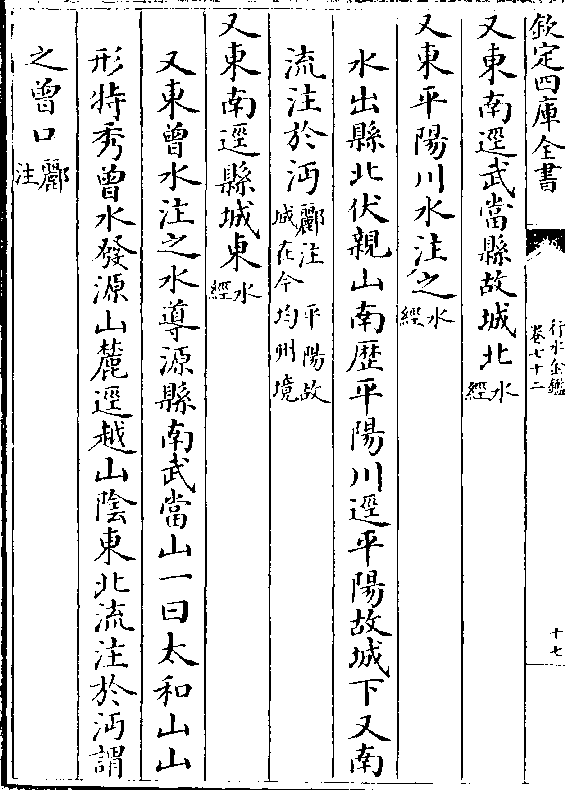 欽定四庫全書
行水金鑑
卷七十二
十七
又東南逕武當縣故城北水經
又東平陽川水注之水經
水出縣北伏親山南歷平陽川逕平陽故城下又南
流注於沔酈注平陽故城在今均州境
又東南逕縣城東水經
又東曾水注之水導源縣南武當山一曰太和山山
形特秀曾水發源山麓逕越山陰東北流注於沔謂
之曾口酈注